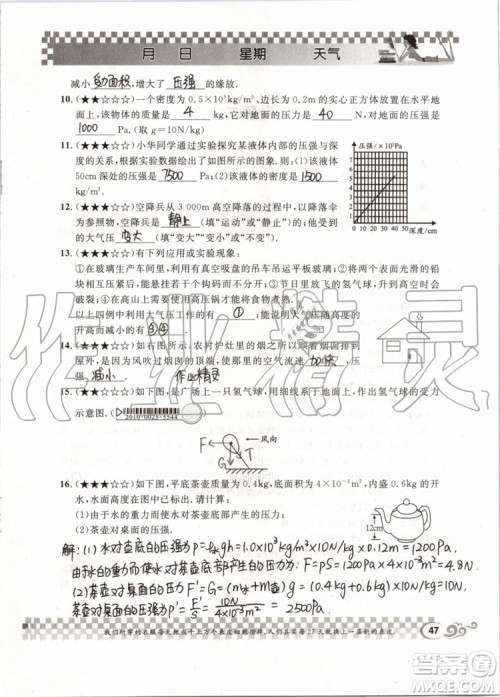 月 日 星期 天气
减小 受力面积,增大了 压强 的缘故.
10. (★★☆☆☆)一个密度为0.5×10³ kg/m³、边长为0.2m的实心正方体放置在水平地
面上,该物体的质量是 4 kg,它对地面的压力是 40 N,对地面的压强是
1000 Pa.(取g=10N/kg)
11. (★★★☆☆)小华同学通过实验探究某液体内部的压强与
深度的关系,根据实验数据绘出了如图所示的图象.(1)该液体
50cm深处的压强是 7500 Pa;(2)该液体的密度是 1500
kg/m³.
压强/×10³Pa
0 10 20 30 40 50 60
深度/cm
12. (★★★☆☆)空降兵从3 000m高空降落的过程中,以降落伞
为参照物,空降兵是 静止 (填“运动”或“静止”)的,他受到
的大气压 变大 (填“变大”“变小”或“不变”).
13. (★★★☆☆)有下列应用或实验现象:
①在玻璃生产车间里,利用真空吸盘的吊车吊装平板玻璃 ②将两个表面光滑的铅
块相互压紧后,下面吊若干个钩码而不分开 ③节日里放飞的氢气球,升高到高空可
能会爆裂 ④在高山上要使用高压锅才能将食物煮熟.
以上四例中利用大气压工作的有 ① ;能说明大气压随高度的
升高而减小的有 ③④ .
14. (★★★☆☆)如右图所示,农村炉灶里的烟之所以顺着烟囱排到
屋外,是因为风吹过烟囱的顶部,使那里的空气流速 加快 ,压
强 减小 .
作业精灵
15. (★★★☆☆)如图,是广场上一只氢气球,用细线系于地面,作出氢气球的受力
示意图.
F
F
风向
T
G
16. (★★★☆☆)如图,平底茶壶的质量为0.4kg,底面积为4×10⁻³m²,内盛0.6kg的开
水,水面高度在图中已标出.请计算:
(1)由于水的重力而使水对茶壶底部产生的压力;
(2)茶壶对桌面的压强.
12cm
解:(1)水对壶底的压强为P=ρ水gh=1.0×10³kg/m³×10N/kg×0.12m=1200Pa,
由水的重力而使水对茶壶底部产生的压力F=PS=1200Pa×4×10⁻³m²=4.8N.
(2)茶壶对桌面的压力F'=G=(m水+m壶)g=(0.4kg+0.6kg)×10N/kg=10N
茶壶对桌面的压强P'=F'/S=10N/4×10⁻³m²=2500Pa.
47